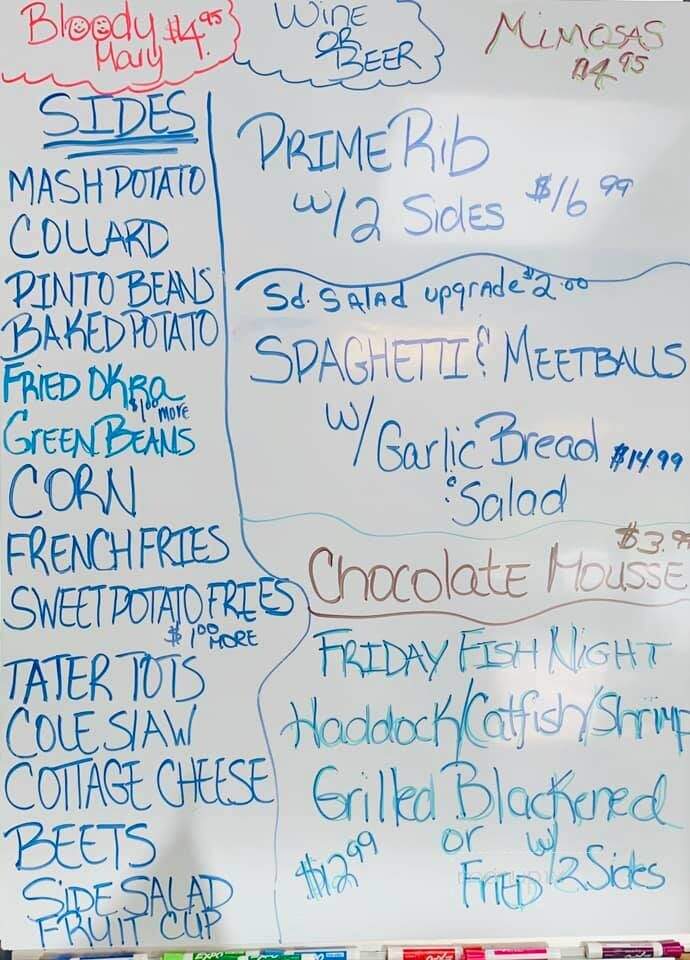 Bloody $4.95
Mary
WINE
OR
BEER
MIMOSAS
$4.95
SIDES
MASH POTATO
COLLARD
PINTO BEANS
BAKED POTATO
FRIED OKRa
$1.00 MORE
GREEN BEANS
CORN
FRENCH FRIES
SWEET POTATO FRIES
$1.00 MORE
TATER TOTS
COLE SlAW
COTTAGE CHEESE
BEETS
SIDE SALAD
FRUIT CUP
PRIME Rib
W/2 SIDES $16.99
Sd. SALAD upgrade $2.00
SPAGHETTI & MEETBALLS
W/ Garlic Bread $14.99
& Salad
$3.99
Chocolate Mousse
FRIDAY FISH NIGHT
Haddock/Catfish/Shrimp
Grilled Blackened
$12.99 or w/
FRIED 2 Sides
EXPO